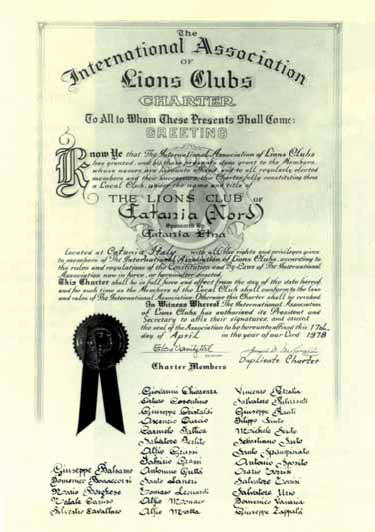 The
International Association
OF
Lions Clubs
CHARTER
To All to Whom These Presents Shall Come:
GREETING
Know Ye that The International Association of Lions Clubs
has granted, and by these presents does grant to the Members,
whose names are hereunto affixed and to all regularly elected
members and their successors, this Charter, fully constituting them
a Local Club, under the name and title of
THE LIONS CLUB OF
Catania Nord
Sponsored By
Catania Etna
Located at Catania, Italy with all the rights and privileges given
to members of The International Association of Lions Clubs, according to
the rules and regulations of the Constitution and By-Laws of The International
Association now in force, or hereinafter enacted.
This Charter shall be in full force and effect from the day of the date hereof
and for such time as the Members of the Local Club shall conform to the laws
and rules of The International Association. Otherwise this Charter shall be revoked.
In Witness Whereof The International Association
of Lions Clubs has authorized its President and
Secretary to affix their signatures, and caused
the seal of the Association to be hereunto affixed this 17th.
day of April in the year of our Lord 1978
Duplicate Charter
Charter Members
Giovanni Vincenzo
Cosentino Salvatore
Giuseppe Giuseppe
Arcenio Curcio Filippo
Carmelo Michele
Salvatore Sebastiano
Alfio Grassi Santo Spampinato
Fabrizio Grassi Antonio Sposito
Giuseppe Balsamo Antonino Orazio
Domenico Bonaccorsi Santo Laneri Salvatore
Mario Borghese Tomaso Leonardi Salvatore
Natale Caruso Alfio Monaco Domenico
Silvestro Cavallaro Alfio Motta Giuseppe Zappalà